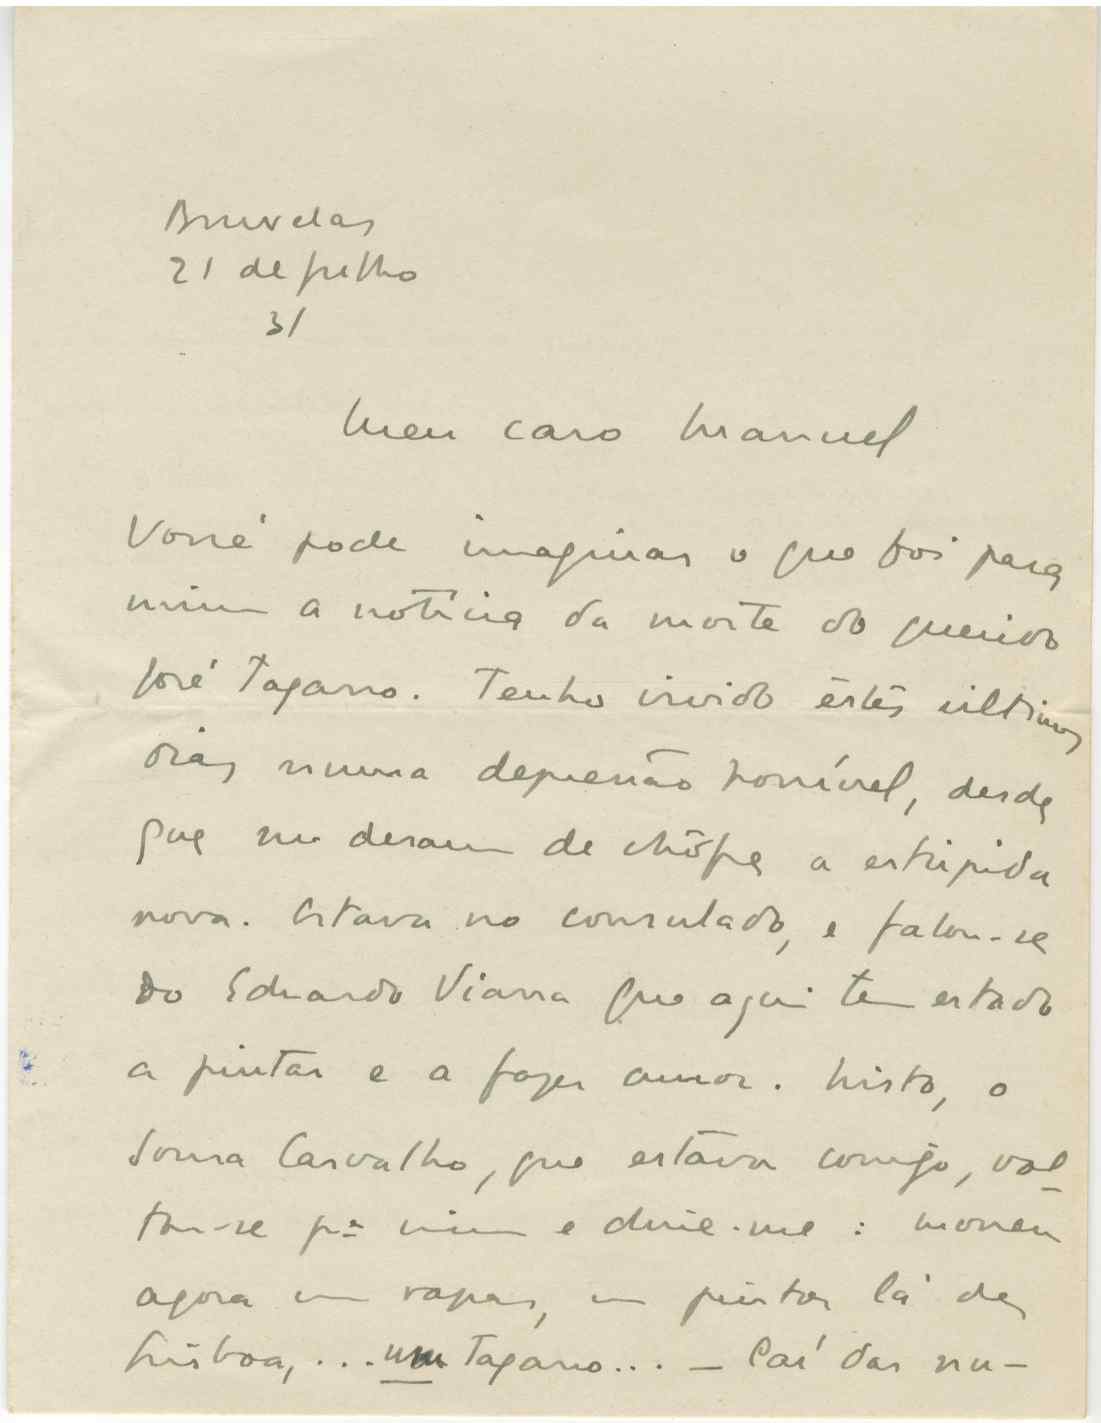 Bruxelas
21 de julho
31
Meu caro Manuel
Você pode imaginar o que foi para
mim a notícia da morte do querido
José Tagarro. Tenho vivido êstes últimos
dias numa depressão horrível, desde
que me deram de chôfre a estúpida
nova. Estava no consulado, e falou-se
do Eduardo Vianna que aqui tem estado
a pintar e a fazer amor. Nisto, o
Sousa Carvalho, que estava comigo, vol-
tou-se pª mim e disse-me: morreu
agora um rapaz, um pintor lá de
Lisboa, ... um Tagarro... – Caí das nu-